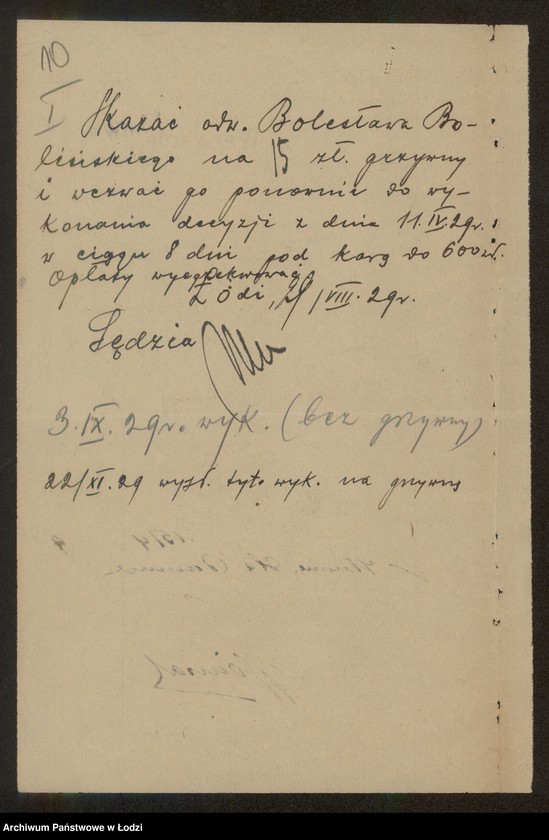 10
I Skazać adw. Bolesława Bo-
lińskiego na 15 zł. grzywny
i wezwać go ponownie do wy-
konania decyzji z dnia 11.IV.29r.
w ciągu 8 dni pod karą do 600 zł.
Opłaty wyegzekwować.
Łódź, 21/VIII.29r.
Sędzia
3.IX.29r. wyk. (bez grzywny)
22/XI.29 wysł. tyt. wyk. na grzywnę
Archiwum Państwowe w Łodzi